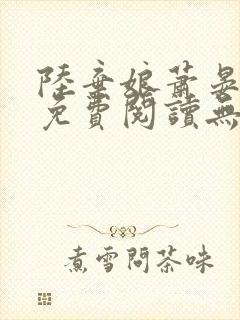 陸棄娘蕭晏
免費閱讀無
煮雪問茶味